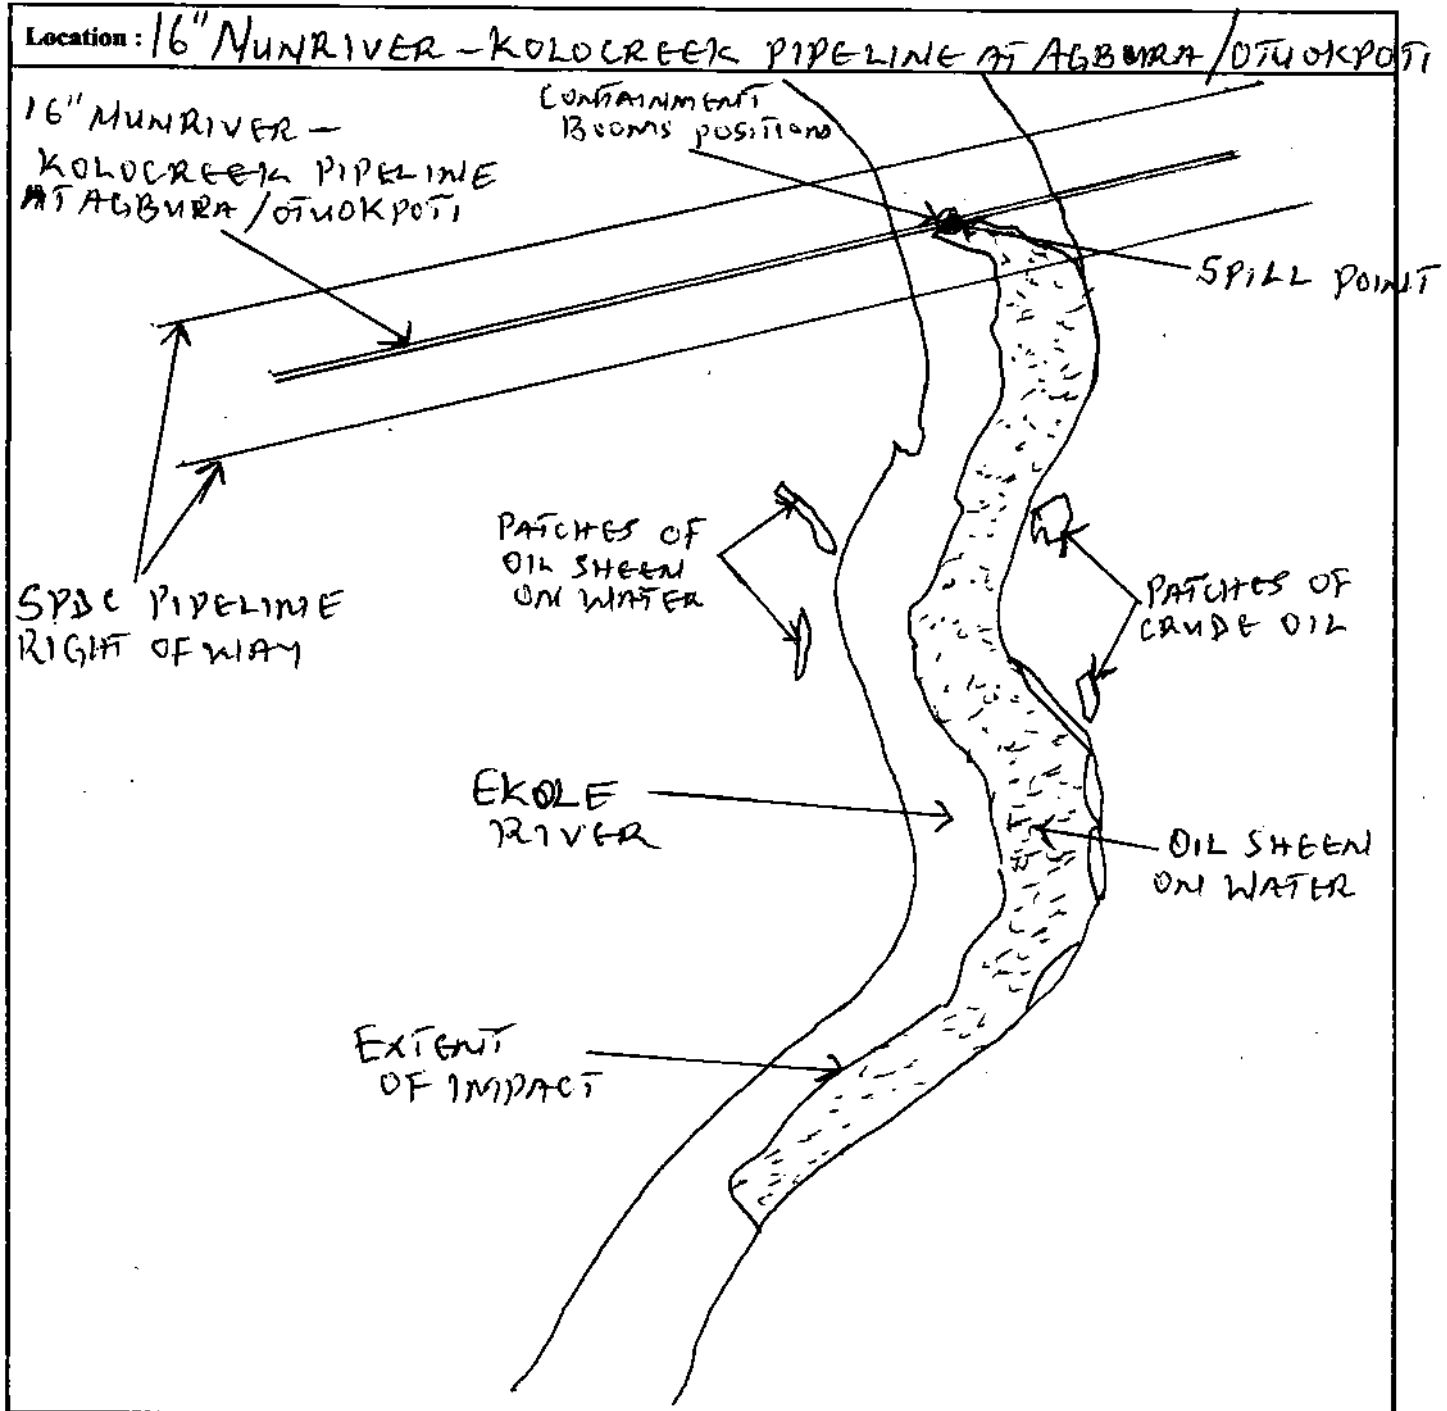 Location : 16" NUNRIVER - KOLOCREEK PIPELINE AT AGBURA / OTUOKPOTI
16" NUNRIVER -
KOLOCREEK PIPELINE
AT AGBURA / OTUOKPOTI
CONTAINMENT
BOOMS POSITION
SPILL POINT
PATCHES OF
OIL SHEEN
ON WATER
SPDC PIPELINE
RIGHT OF WAY
PATCHES OF
CRUDE OIL
EKOLE
RIVER
OIL SHEEN
ON WATER
EXTENT
OF IMPACT